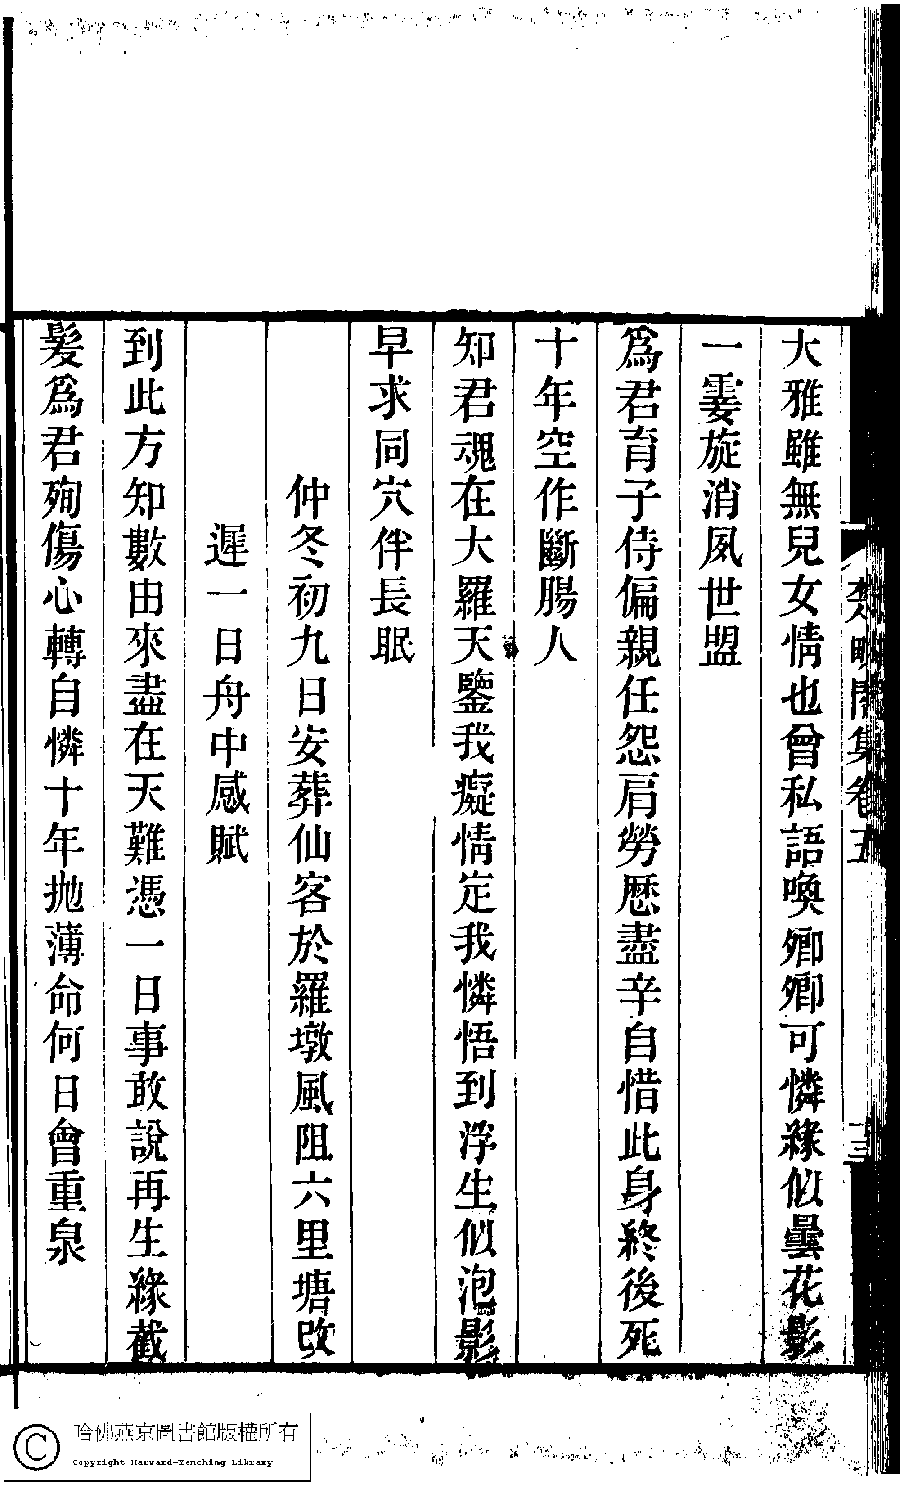 大雅雖無兒女情也曾私語喚卿卿可憐緣似曇花影
一霎旋消夙世盟
爲君育子侍偏親任怨肩勞歷盡辛自惜此身終後死
十年空作斷腸人
知君魂在大羅天鑒我癡情定我憐悟到浮生似泡影
早求同穴伴長眠
仲冬初九日安葬仙客於羅墩風阻六里塘改
遲一日舟中感賦
到此方知數由來盡在天難憑一日事敢說再生緣截
髮爲君殉傷心轉自憐十年拋薄命何日會重泉
哈佛燕京圖書館版權所有
Copyright Harvard-Yenching Library